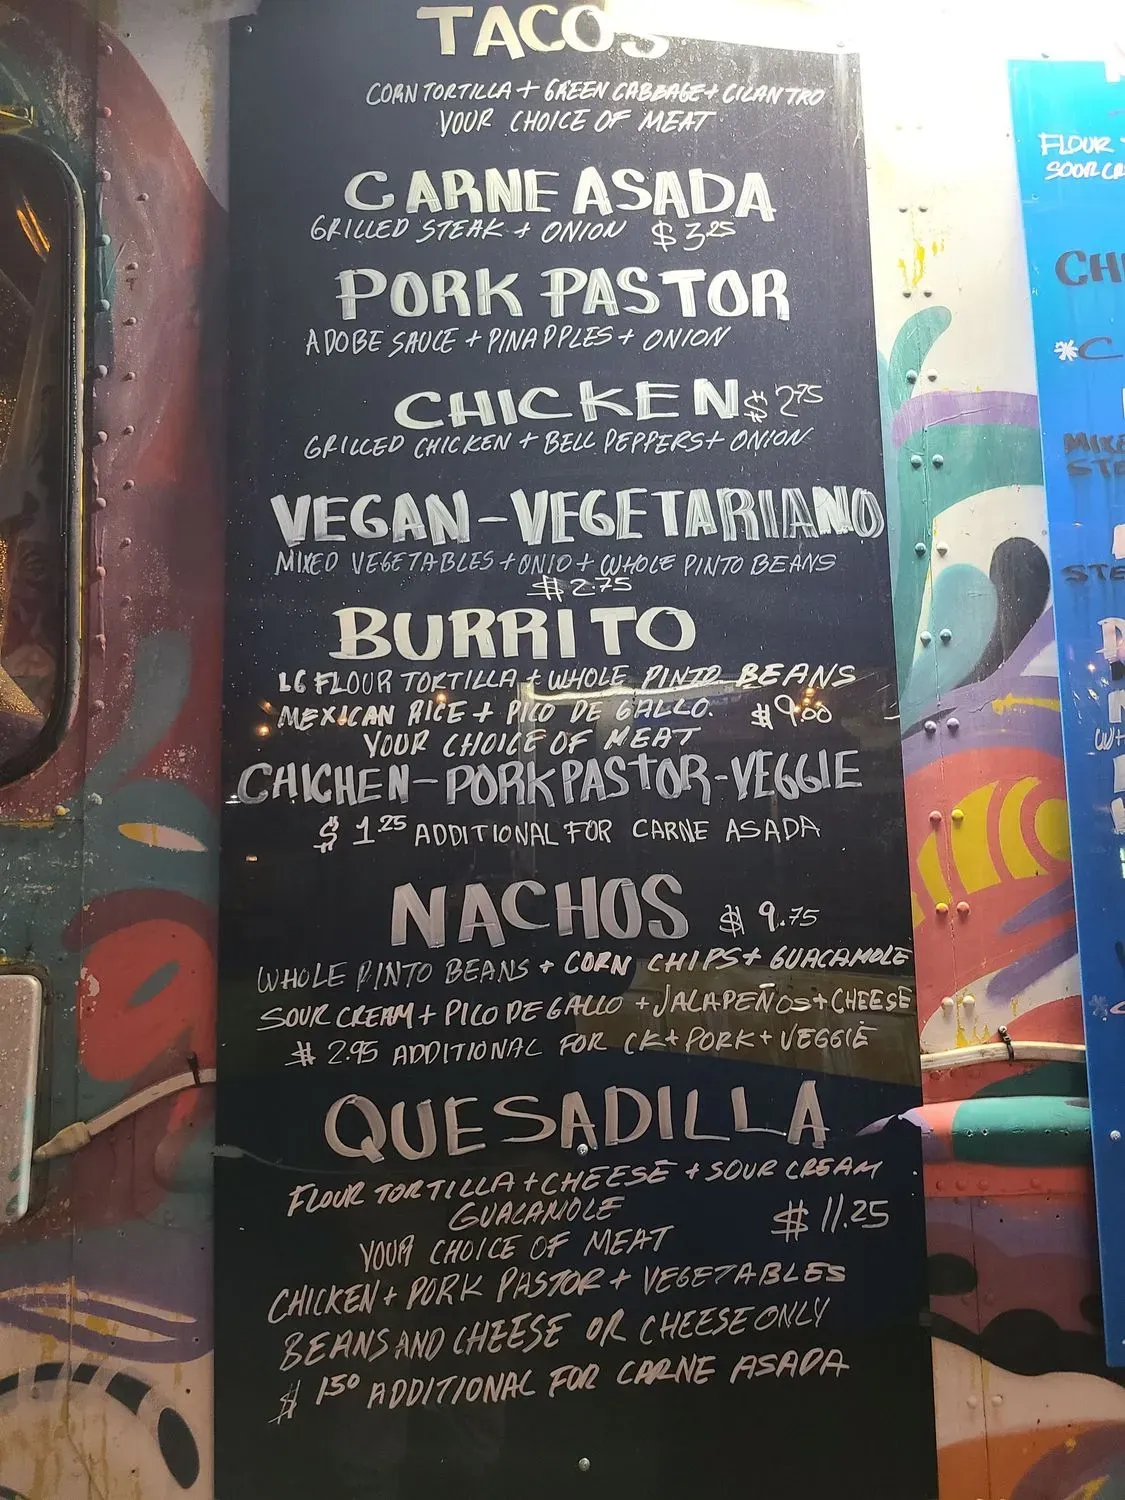 TACOS
CORN TORTILLA + GREEN CABBAGE + CILANTRO
YOUR CHOICE OF MEAT
CARNE ASADA
GRILLED STEAK + ONION $3.25
PORK PASTOR
ADOBE SAUCE + PINAPPLES + ONION
CHICKEN $2.75
GRILLED CHICKEN + BELL PEPPERS + ONION
VEGAN-VEGETARIANO
MIXED VEGETABLES + ONIO + WHOLE PINTO BEANS
$2.75
BURRITO
LG FLOUR TORTILLA + WHOLE PINTO BEANS
MEXICAN RICE + PICO DE GALLO. $9.00
YOUR CHOICE OF MEAT
CHICHEN-PORK PASTOR-VEGGIE
$1.25 ADDITIONAL FOR CARNE ASADA
NACHOS $9.75
WHOLE PINTO BEANS + CORN CHIPS + GUACAMOLE
SOUR CREAM + PICO DE GALLO + JALAPEÑOS + CHEESE
$2.95 ADDITIONAL FOR CK + PORK + VEGGIE
QUESADILLA
FLOUR TORTILLA + CHEESE + SOUR CREAM
GUACAMOLE
$11.25
YOUR CHOICE OF MEAT
CHICKEN + PORK PASTOR + VEGETABLES
BEANS AND CHEESE OR CHEESE ONLY
$1.50 ADDITIONAL FOR CARNE ASADA
FLOUR